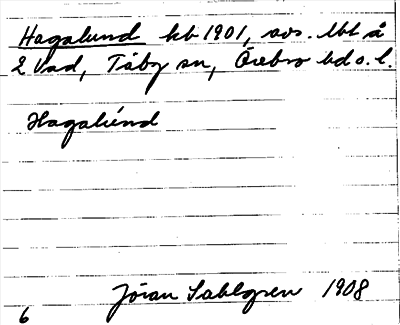 Hagalund hb 1901, avs. lht å
2 Vad, Täby sn, Örebro hd o. l.
Hagalúnd
Jöran Sahlgren 1908
6